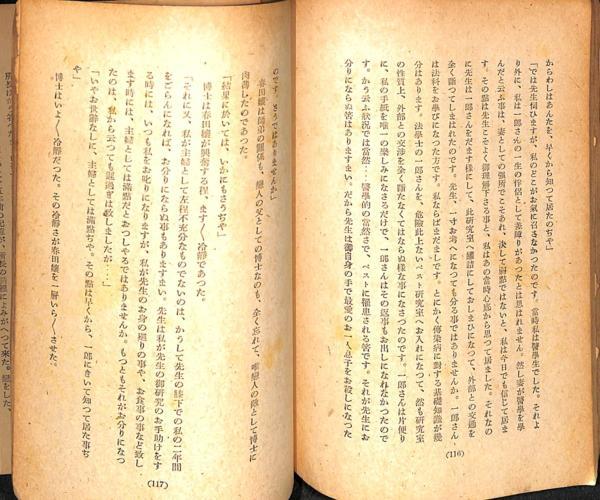 からわしはあんたを、早くから知つて居たのぢや」
「では先生伺ひますが、私のどこがお氣に召さなかつたのです。當時私は醫學生でした。それよ
り外に、私は一郎さんの一生の伴侶として差障りがあつたとは思はれません。然し妻が醫學を學
んだと云ふ事は、妻としての強所でこそあれ、決して弱點ではないと、私は今日でも信じて居ま
す。その點は先生こそよく御理解下さる筈と、私はあの當時心から思つて居ました。それなの
に先生は一郎さんをだます様にして、此研究室へ罐詰にしておしまひになつて、外部との交通を
全く斷つてしまはれたのです。先生、一寸お考へになつても分る事ではありませんか。一郎さん
は法科をお學びになつた方です。私ならばまだましです。とにかく傳染病に對する基礎知識が幾
分はあります。法學士の一郎さんを、危險此上ないペスト研究室へお入れになつて、然も研究室
の性質上、外部との交渉を全く斷たなくてはならぬ様な事になさつたのです。一郎さんは片便り
に、私の手紙を唯一の樂しみになさるだけで、私にはその返事もお出しになれなかつたので
す。かう云ふ狀況では當然・・・醫學的の當然さで、ペストに罹患される筈です。それが先生にお
分りにならぬ筈はありますまい。だから先生は御自身の手で最愛のお一人息子をお殺しになつた
(116)
のです。さうではありませんか」
春田孃は師弟の關係も、戀人の父としての博士なのも、全く忘れて、唯戀人の敵として博士に
肉薄したのであつた。
「結果に於いては、いかにもさうぢや」
博士は春田孃が興奮する程、ます〱冷靜であつた。
「それに又、私が主婦として左程不充分なものでないのは、かうして先生の膝下での私の二年間
をごらんになれば、お分りにならぬ事もありますまい。先生は私が先生の御研究のお手助けをす
る時には、いつも私をお叱りになりますが、私が先生のお身の廻りの事や、お食事の事など致し
ます時には、主婦としては滿點だとおつしやるではありませんか。もつともそれがお分りになつ
たのは、私から云つても遲過ぎは致しましたが・・・・」
「いやお世辭なしに、主婦としては滿點ぢや。その點は早くから、一郎にきいて知つて居た事ぢ
や」
博士はいよ〱冷靜だつた。その冷靜さが春田孃を一層いら〱させた。
(117)